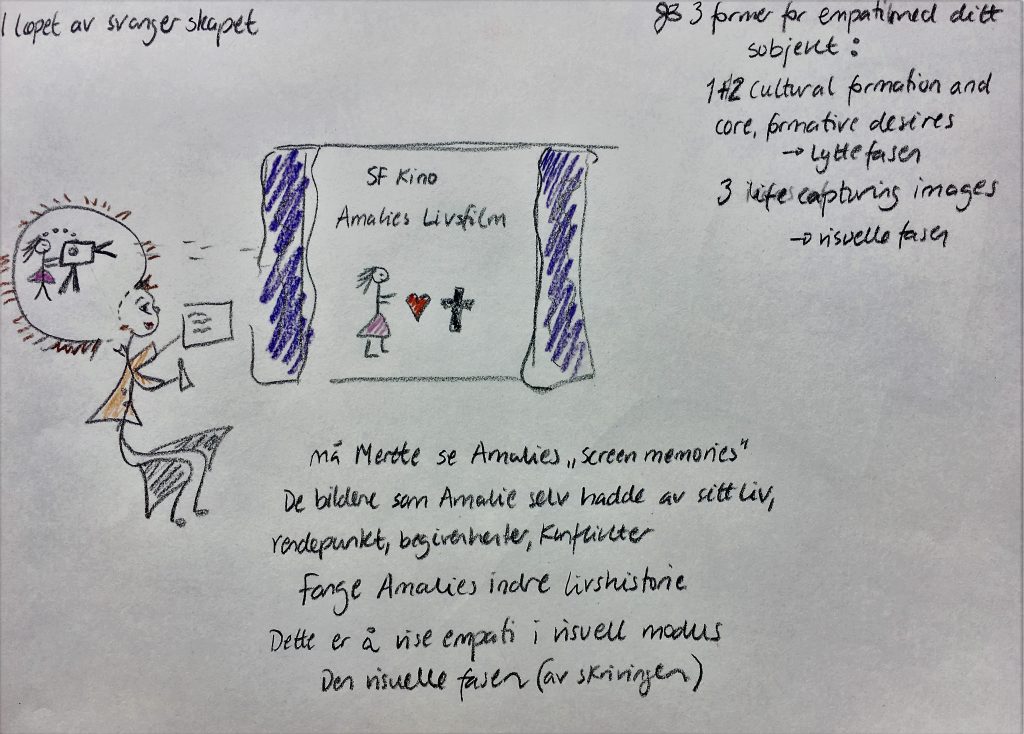 I løpet av svangerskapet
3 former for empati med ditt
subjekt:
1+2 cultural formation and
core, formative desires
→ Lyttefasen
3 life capturing images
→ visuelle fasen
SF Kino
Amalies Livsfilm
må Merete se Amalies „screen memories"
De bildene som Amalie selv hadde av sitt liv,
vendepunkt, begivenheter, Konflikter
Fange Amalies indre livshistorie
Dette er å vise empati i visuell modus
Den visuelle fasen (av skrivingen)